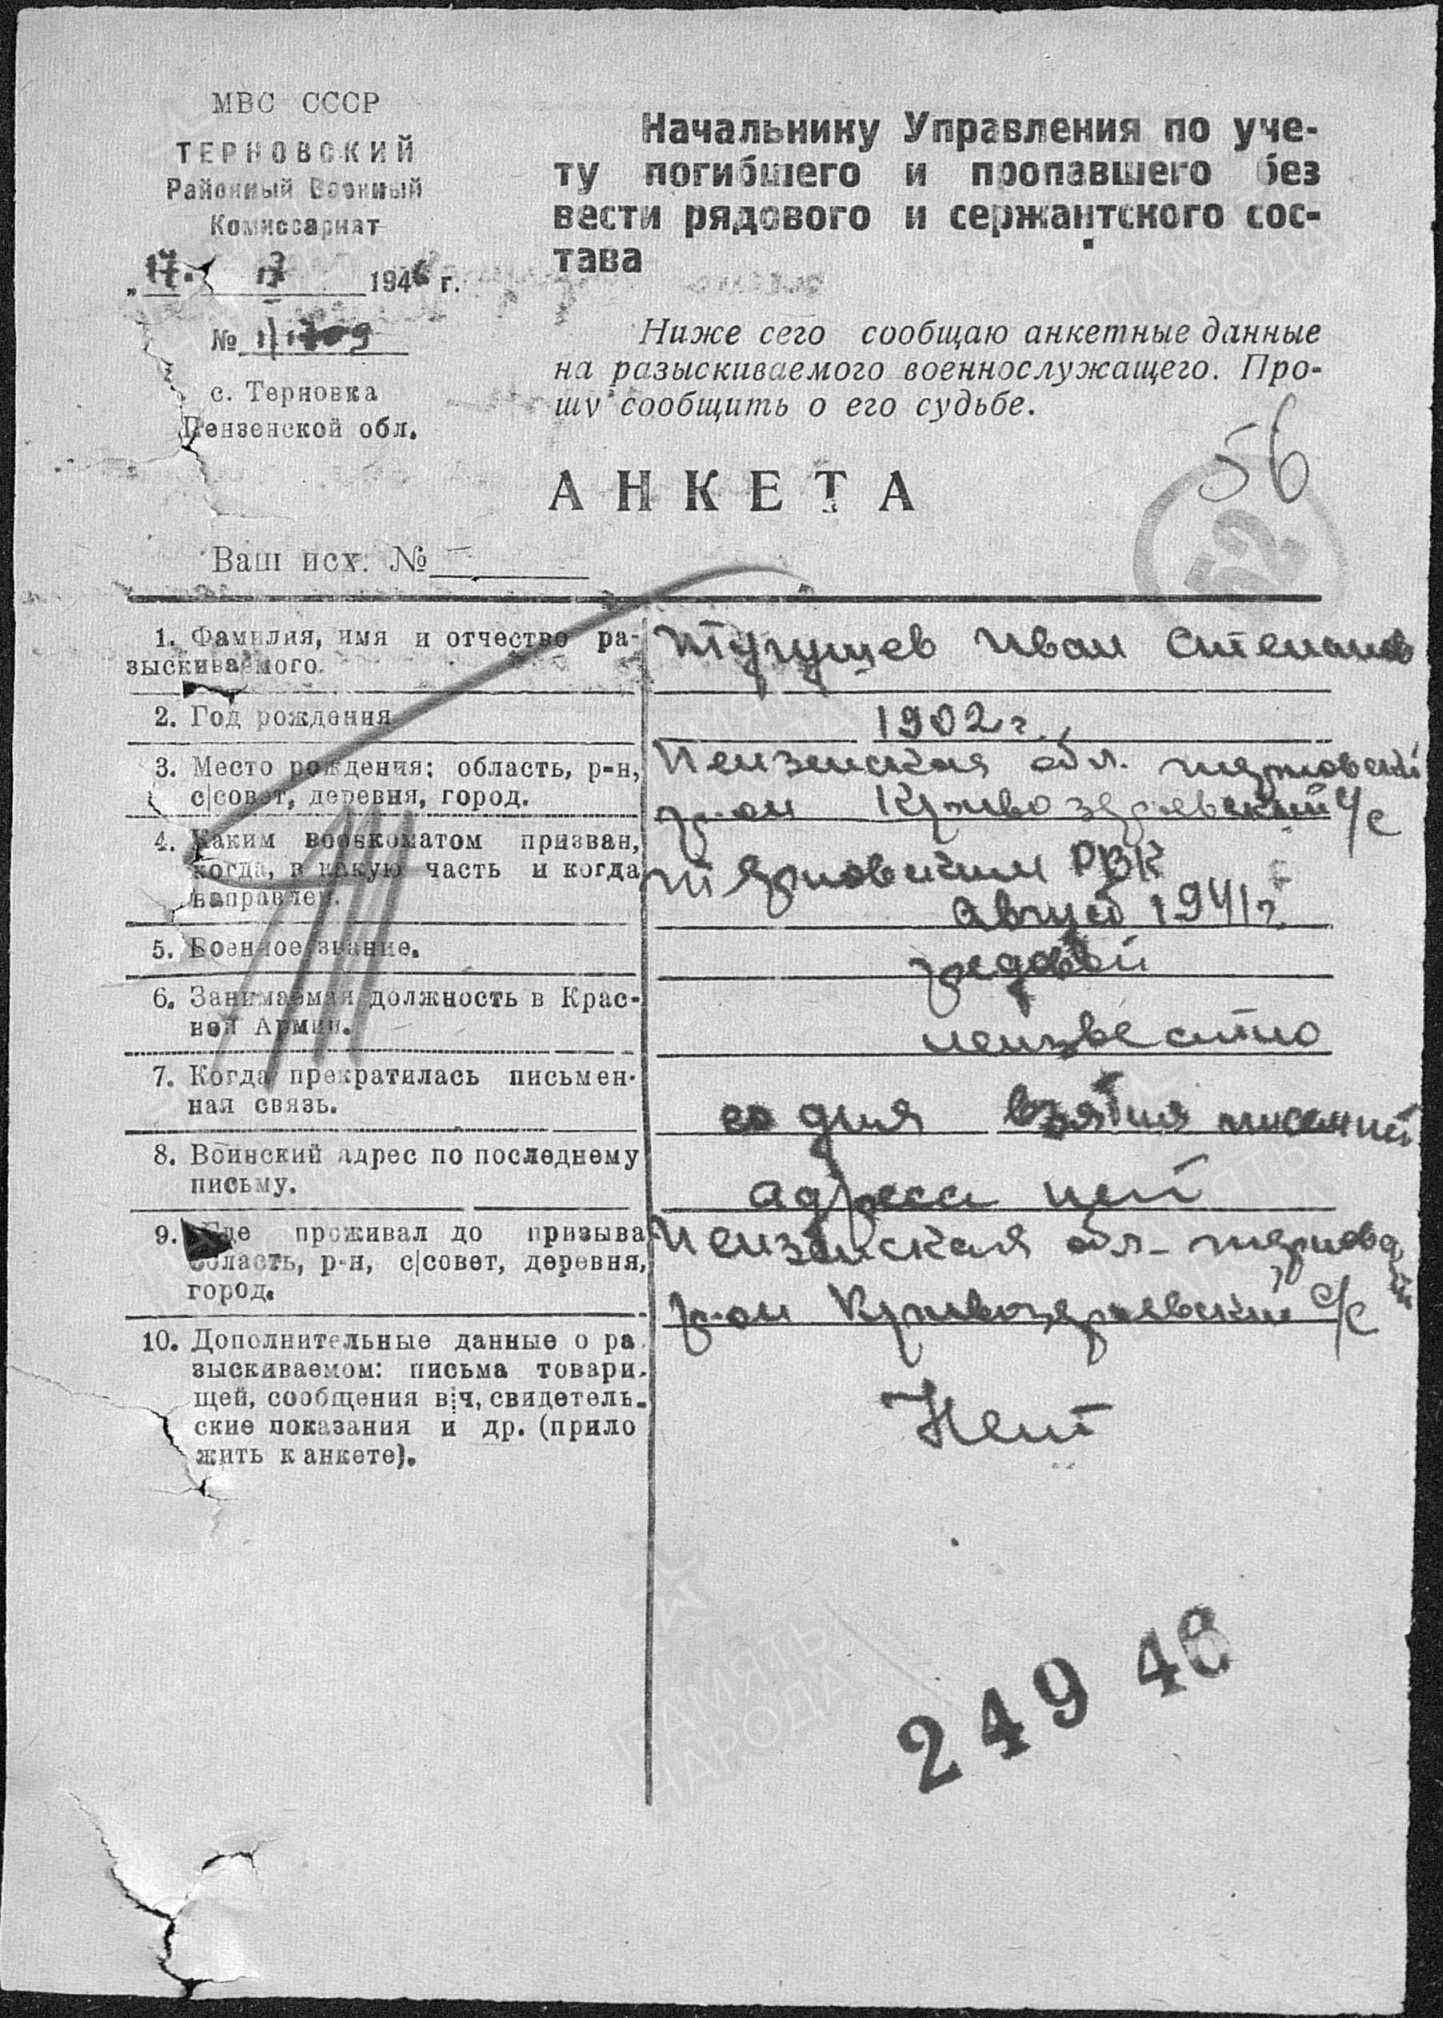 МВС СССР
ТЕРНОВСКИЙ
Районный Военный
Комиссариат
„17. 1946 г.
№
с. Терновка
Пензенской обл.
Начальнику Управления по уче-
ту погибшего и пропавшего без
вести рядового и сержантского сос-
тава
Ниже сего сообщаю анкетные данные
на разыскиваемого военнослужащего. Про-
шу сообщить о его судьбе.
56
52
АНКЕТА
Ваш исх. №
1. Фамилия, имя и отчество ра-
зыскиваемого.
Иван Степанов
2. Год рождения
1902 г.
3. Место рождения: область, р-н,
с|совет, деревня, город.
Пензенская обл. терновский
р-он Кривозерьевский с/с
4. Каким военкоматом призван,
когда, в какую часть и когда
направлен.
терновским РВК
август 1941 г.
5. Военное звание.
рядовой
6. Занимаемая должность в Крас-
ной Армии.
неизвестно
7. Когда прекратилась письмен-
ная связь.
со дня взятия писем нет
8. Воинский адрес по последнему
письму.
адреса нет
9. Где проживал до призыва
область, р-н, с|совет, деревня,
город.
Пензенская обл. терновский
р-он Кривозерьевский с/с
10. Дополнительные данные о ра
зыскиваемом: письма товари-
щей, сообщения в|ч, свидетель-
ские показания и др. (прило
жить к анкете).
Нет
249 46
ПАМЯТЬ
НАРОДА